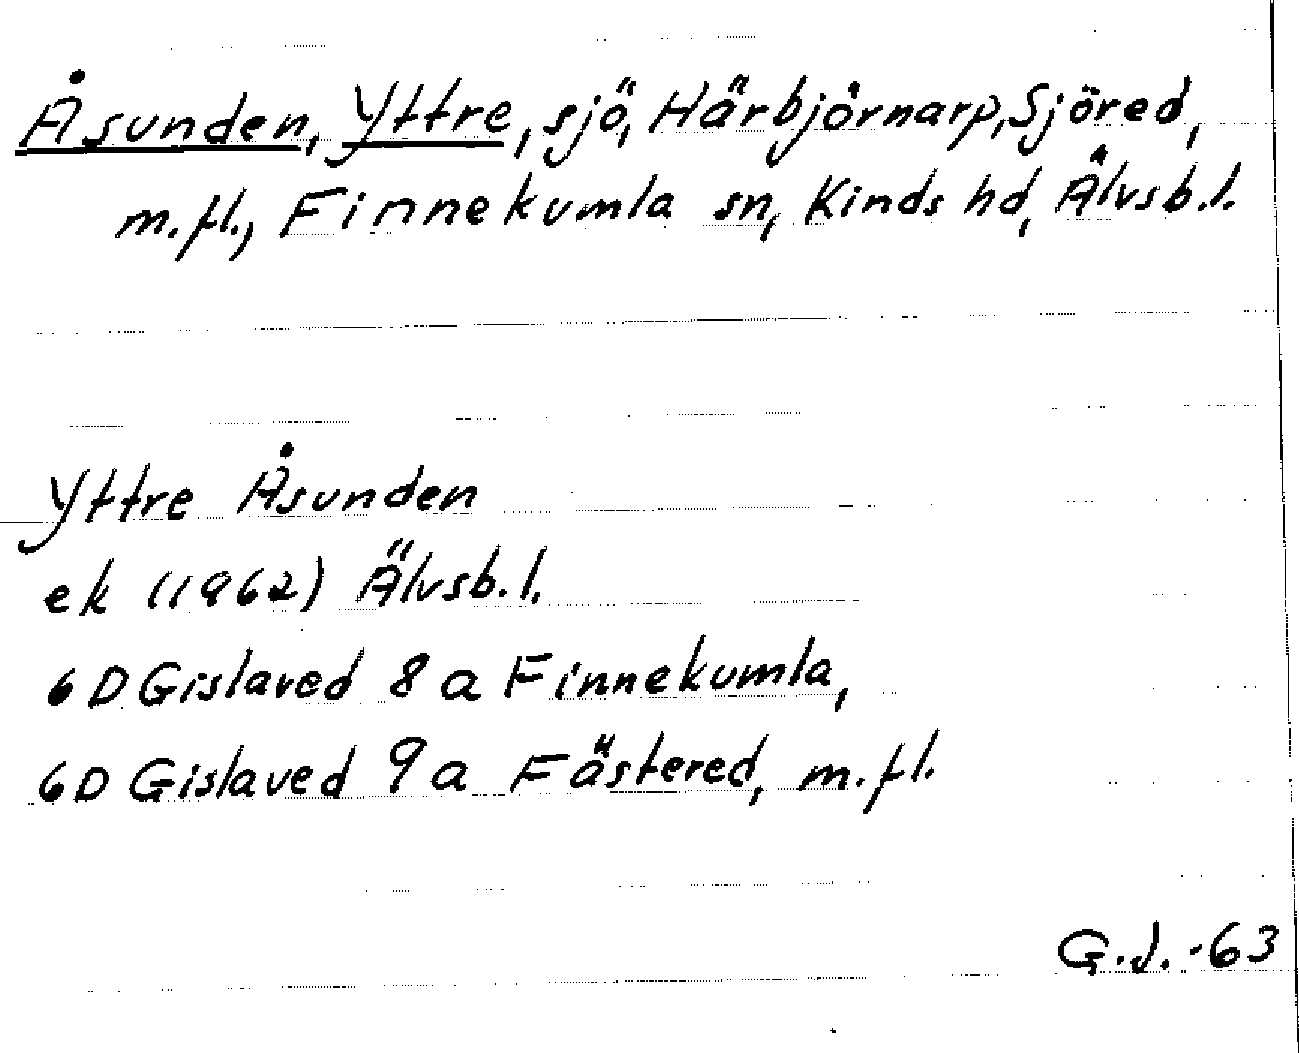 Åsunden, Yttre, sjö, Härbjörnarp, Sjöred,
m.fl., Finnekumla sn, Kinds hd, Älvsb.l.
Yttre Åsunden
ek (1962) Älvsb.l.
6D Gislaved 8a Finnekumla,
6D Gislaved 9a Fästered, m.fl.
G.J. -63